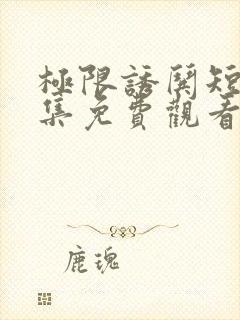 極限誘關短
集免費觀看
鹿瑰